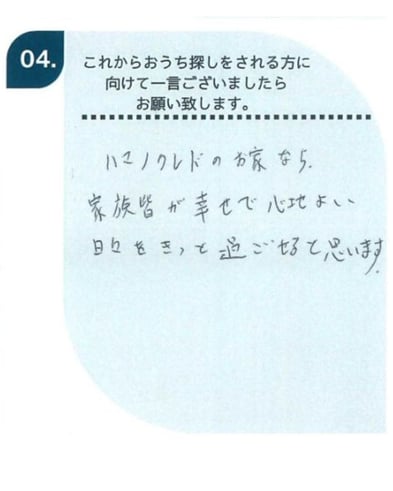 04.
これからおうち探しをされる方に
向けて一言ございましたら
お願い致します。
ハマノクレドのお家なら、
家族皆が幸せで心地よい
日々をきっと過ごせると思います。